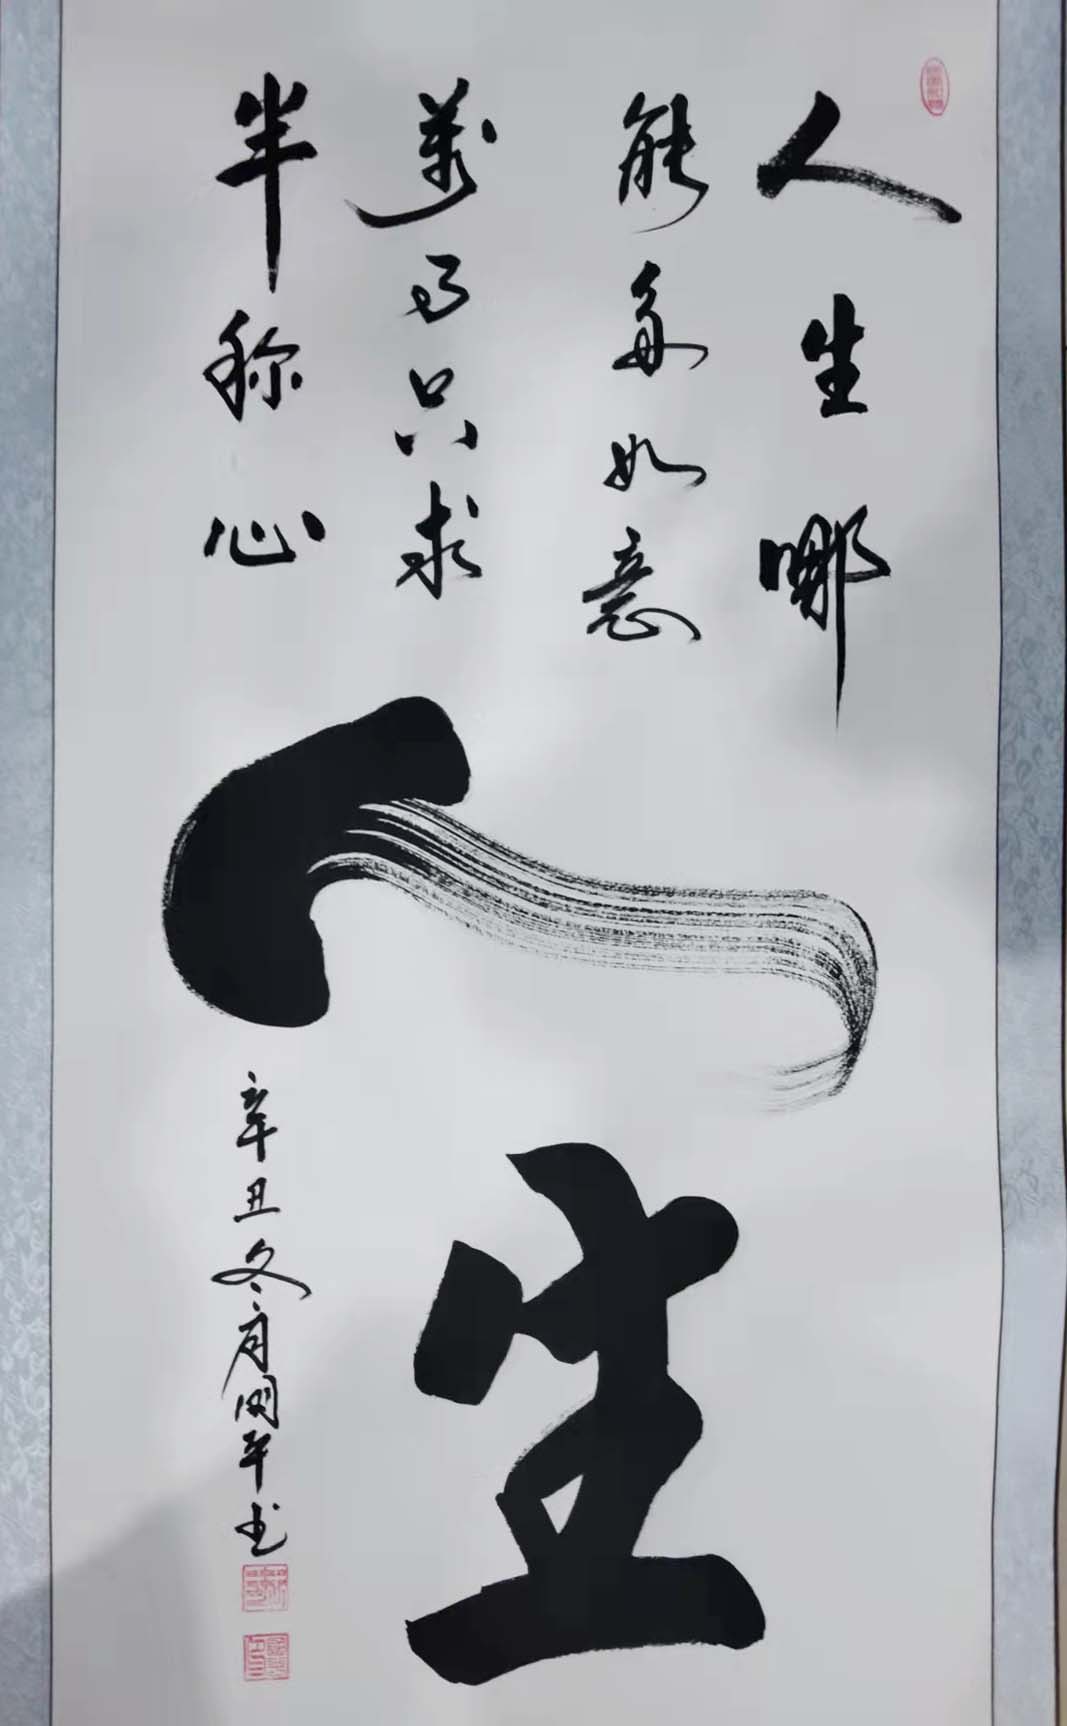 人生哪
能多如意
萬事只求
半称心
人生
辛丑冬月平书